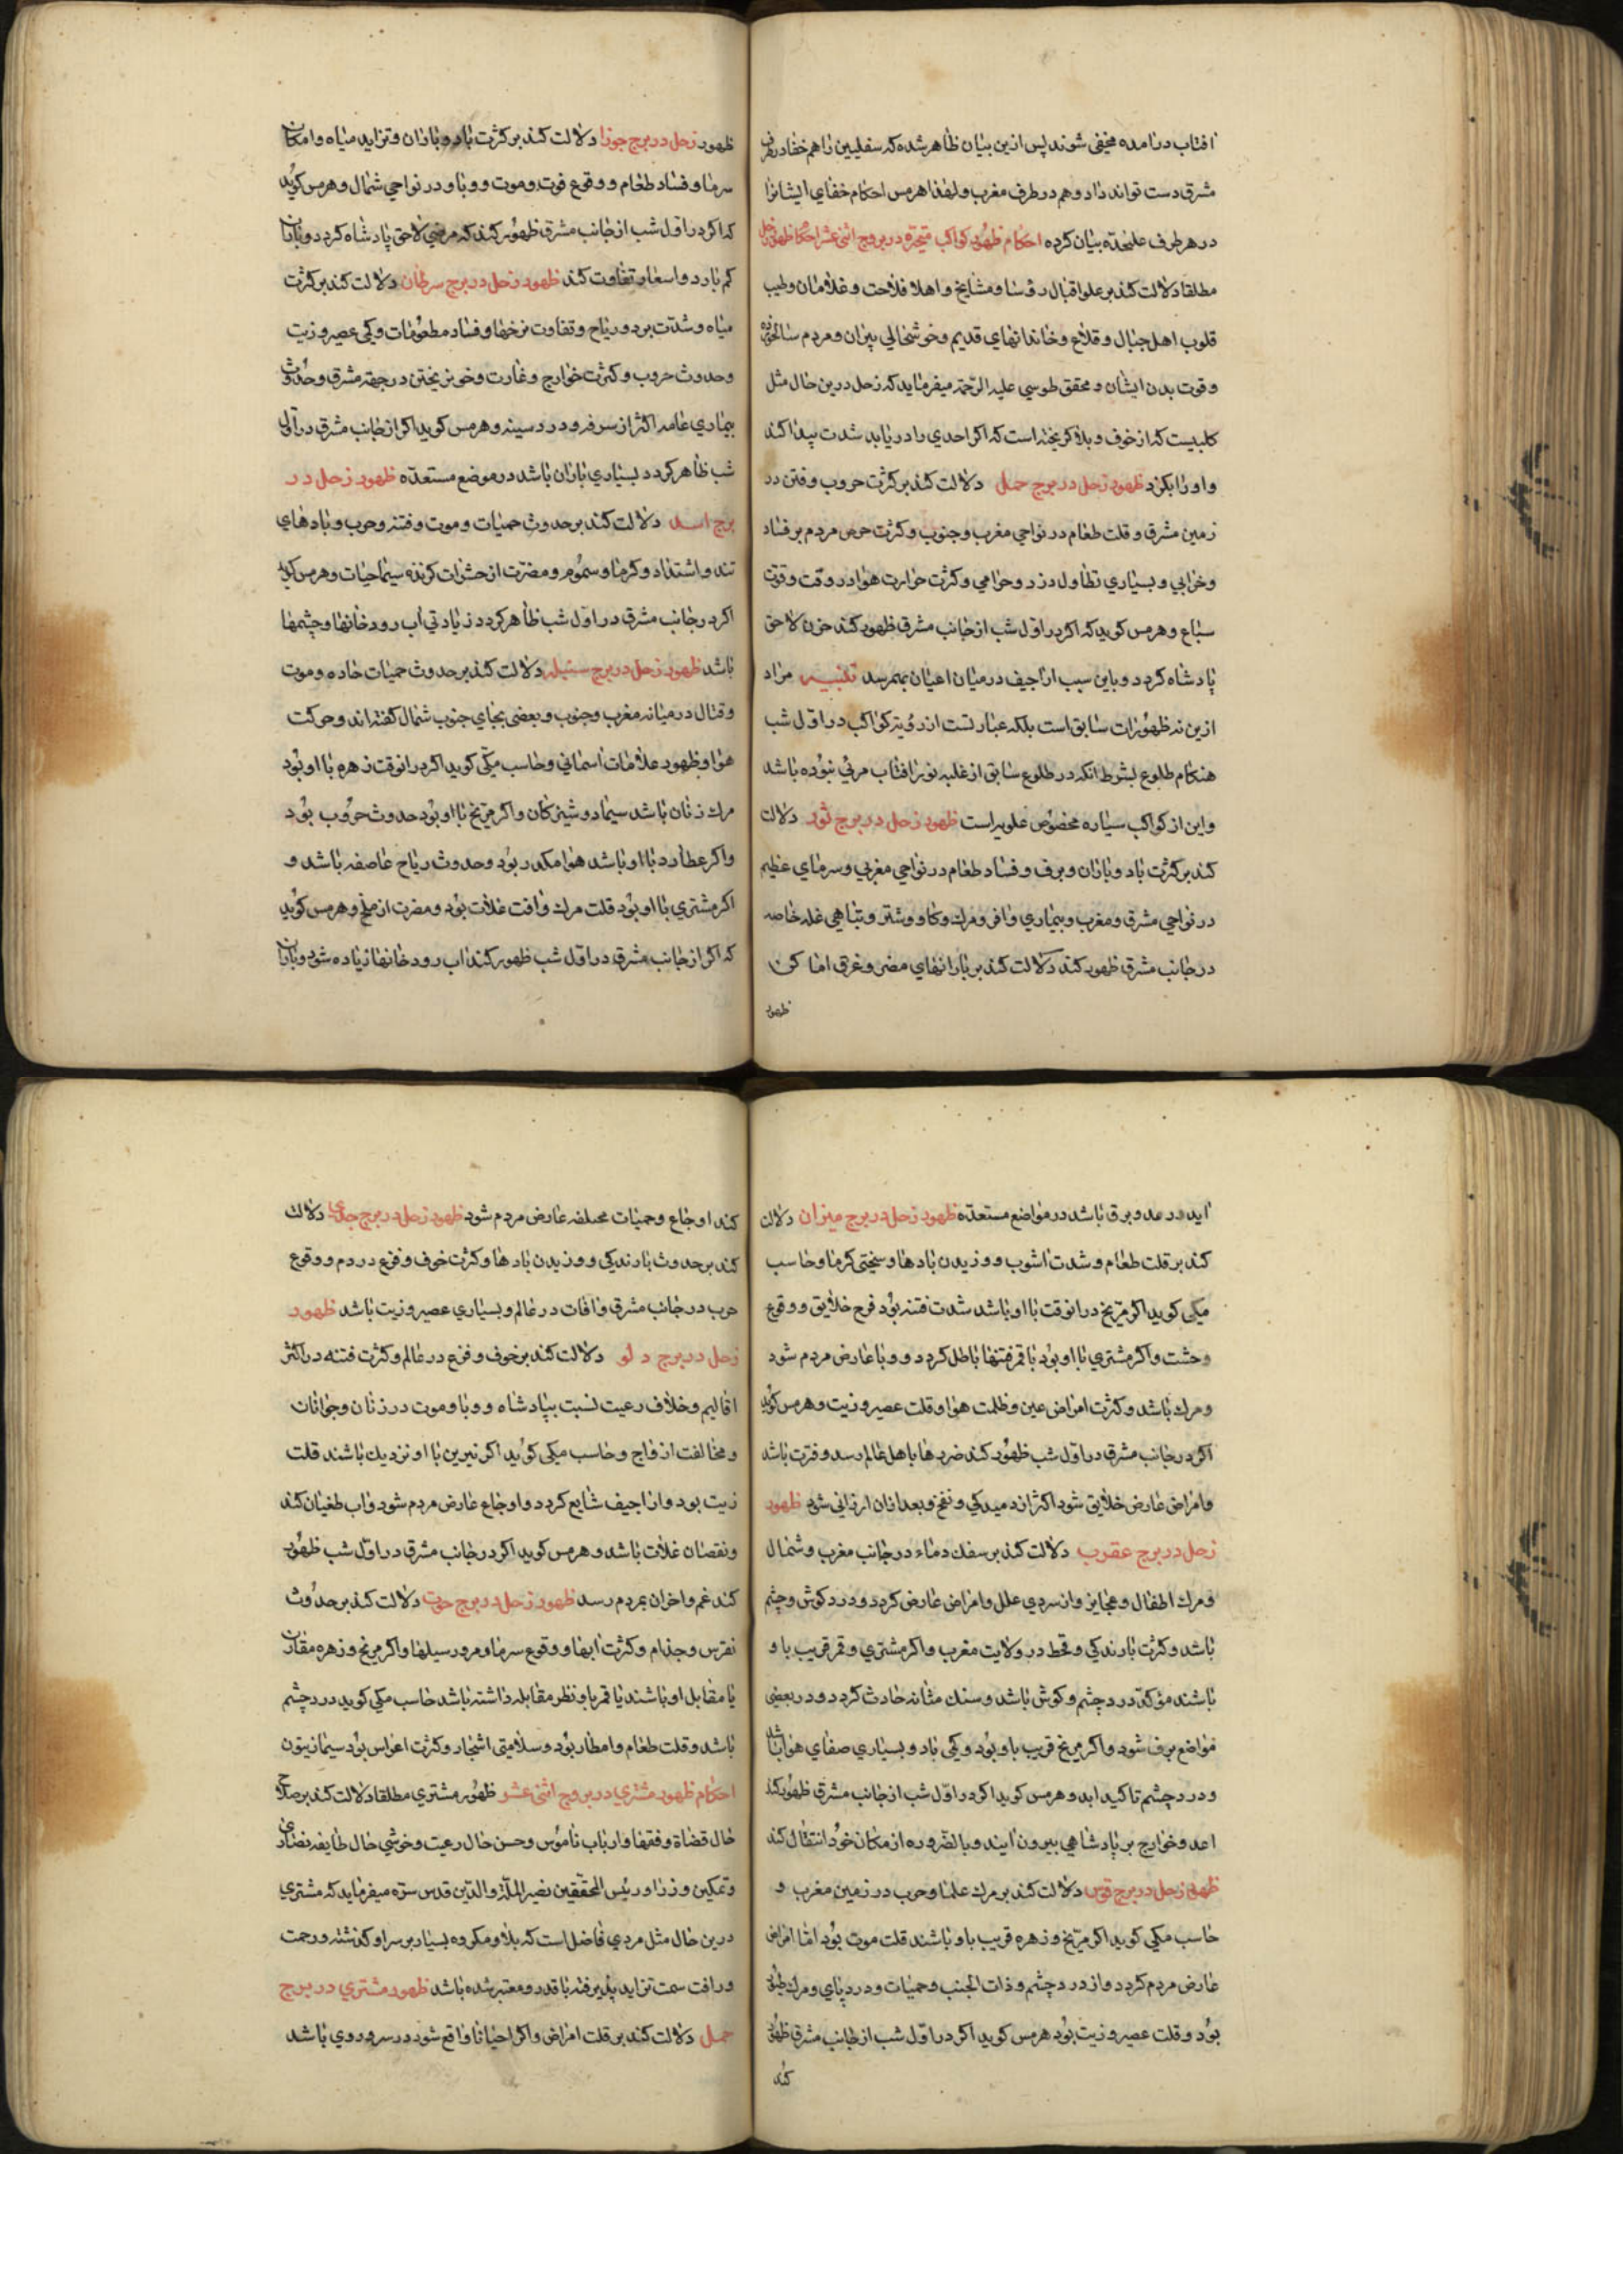 افتاب درامده مخفی شوند پس ازین بیان ظاهر شده که سفلیین را هم خفا در طرف
مشرق دست تواند داد و هم در طرف مغرب و لهذا هرمس احکام خفای ایشانرا
در هر طرف علیحده بیان کرده احکام ظهور کواکب متحیره در بروج اثنی عشر احکام ظهور زحل
مطلقا دلالت کند بر علو اقبال رؤسا و مشایخ و اهل فلاحت و غلامان و طیب
قلوب اهل جبال و قلاع و خاندانهای قدیم و خوشحالی پیران و مردم سالخورده
و قوت بدن ایشان و محقق طوسی علیه الرحمه میفرماید که زحل درین حال مثل
کلبیست که از خوف و بلا کریخته است که اکر احدی را دریابد شدت پیدا کند
و او را بکزد ظهور زحل در برج حمل دلالت کند بر کثرت حروب و فتن در
زمین مشرق و قلت طعام در نواحی مغرب و جنوب و کثرت حرص مردم بر فساد
و خرابی و بسیاری تطاول دزد و حرامی و کثرت حرارت هوا در وقت وقوت
سباع و هرمس کوید که اکر در اول شب از جانب مشرق ظهور کند حزن لاحق
پادشاه کردد و باین سبب اراجیف در میان اعیان بهمرسد تنبیه مراد
ازین نه ظهورات سابق است بلکه عبارتست از رؤیة کواکب در اول شب
هنکام طلوع بشرط انکه در طلوع سابق از غلبه نور افتاب مرئی نبوده باشد
و این از کواکب سیاره مخصوص علویراست ظهور زحل در برج ثور دلالت
کند بر کثرت باد و باران و برف و فساد طعام در نواحی مغربی و سرمای عظیم
در نواحی مشرق و مغرب و بیماری وافی و مرك وکاو و شتر و تباهی غله خاصه
در جانب مشرق ظهور کند دلالت کند بر بارانهای مضر و غرق اماکن
ظهور
ظهور زحل در برج جوزا دلالت کند بر کثرت باد و باران و تزاید میاه و امکان
سرما و فساد طعام و وقوع فوت و موت و وبا و در نواحی شمال و هرمس کوید
که اکر در اول شب از جانب مشرق ظهور کند که مرضی لاحق پادشاه کردد و باران
کم بارد و اسعار تفاوت کند ظهور زحل در برج سرطان دلالت کند بر کثرت
میاه و شدت برد و ریاح و تفاوت نرخها و فساد مطعومات و کمی عصیر و زیت
و حدوث حروب و کثرت خوارج و غارت و خون ریختن در جهة مشرق و حدوث
بیماری عامه اکثر از سرفه و درد سینه و هرمس کوید اکر از جانب مشرق در اول
شب ظاهر کردد بسیاری باران باشد در موضع مستعده ظهور زحل در
برج اسد دلالت کند بر حدوث حمیات و موت و فتنه و حرب و بادهای
تند و اشتداد و کرما و سموم و مضرت از حشرات کزنده سیما حیات و هرمس کوید
اکر در جانب مشرق در اول شب ظاهر کردد زیادتی آب رودخانها و چشمها
باشد ظهور زحل در برج سنبله دلالت کند بر حدوث حمیات حاده و موت
و قتال در میانه مغرب و جنوب و بعضی بجای جنوب شمال کفته اند و حرکت
هوا و ظهور علامات اسمانی و حاسب مکی کوید اکر در انوقت زهره با او بود
مرك زنان باشد سیما دوشیزکان و اکر مریخ با او بود حدوث حروب بود
و اکر عطارد با او باشد هوا مکدر بود و حدوث ریاح عاصفه باشد و
اکر مشتری با او بود قلت مرك و افت غلات بود و مضرت از ملخ و هرمس کوید
که اکر از جانب مشرق در اول شب ظهور کند اب رودخانها زیاده شود و باران
اید و رعد و برق باشد در مواضع مستعده ظهور زحل در برج میزان دلالت
کند بر قلت طعام و شدت اشوب و وزیدن بادها و سختی کرما و حاسب
مکی کوید اکر مریخ در انوقت با او باشد شدت فتنه بود فرح خلایق و وقوع
وحشت و اکر مشتری با او بود یا قمر فتنها باطل کردد و وبا عارض مردم شود
و مرك باشد و کثرت امراض عین و ظلمت هوا و قلت عصیر و زیت و هرمس کوید
اکر در جانب مشرق در اول شب ظهور کند ضررها باهل عالم رسد و فترت باشد
و امراض عارض خلایق شود اکثر از دمیدکی و نفخ و بعد ازان ارزانی شود ظهور
زحل در برج عقرب دلالت کند بر سفك دماء در جانب مغرب و شمال
و مرك اطفال و عجایز و از سردی علل و امراض عارض کردد و درد کوش و چشم
باشد و کثرت بارندکی و قحط در ولایت مغرب و اکر مشتری و قمر قریب با و
باشند مؤکد درد چشم و کوش باشد و سنك مثانه حادث کردد و در بعضی
مواضع برف شود و اکر مریخ قریب باو بود و کمی باد و بسیاری صفای هوا باشد
و درد چشم تاکید ابد و هرمس کوید اکر در اول شب از جانب مشرق ظهور کند
اعد و خوارج بر پادشاهی بیرون ایند و بالضروره از مکان خود انتقال کند
ظهور زحل در برج قوس دلالت کند بر مرك علما و حرب در زمین مغرب و
حاسب مکی کوید اکر مریخ و زهره قریب باو باشند قلت موت بود اما امراض
عارض مردم کردد و از درد چشم و ذات الجنب و حمیات و درد پای و مرك طیور
بود و قلت عصیر و زیت بود هرمس کوید اکر در اول شب از جانب مشرق ظهور
کند
کند اوجاع و حمیات مختلفه عارض مردم شود ظهور زحل در برج جدی دلالت
کند بر حدوث بارندکی و وزیدن بادها و کثرت خوف و فزع در دم و وقوع
حرب در جانب مشرق و افات در عالم و بسیاری عصیر و زیت باشد ظهور
زحل در برج دلو دلالت کند بر خوف و فزع در عالم و کثرت فتنه در اکثر
اقالیم و خلاف رعیت نسبت بپادشاه و وبا و موت در زنان و جوانان
و مخالفت ازواج و حاسب مکی کوید اکر نیرین با او نزدیك باشند قلت
زیت بود و اراجیف شایع کردد و اوجاع عارض مردم شود و اب طغیان کند
و نقصان غلات باشد و هرمس کوید اکر در جانب مشرق در اول شب ظهور
کند غم و احزان بمردم رسد ظهور زحل در برج حوت دلالت کند بر حدوث
نقرس و جذام و کثرت ابها و وقوع سرما و مرور سیلها و اکر مریخ و زهره مقارن
یا مقابل او باشند یا قمر باو نظر مقابله داشته باشد حاسب مکی کوید درد چشم
باشد و قلت طعام و امطار بود و سلامتی اشجار و کثرت اعراس بود سیما زیتون
احکام ظهور مشتری در بروج اثنی عشر ظهور مشتری مطلقا دلالت کند بر صلاح
حال قضاة و فقها و ارباب ناموس و حسن حال رعیت و خوشی حال طایفه نصاری
و تمکین وزرا و رئیس المحققین نصیر الملة والدین قدس سره میفرماید که مشتری
درین حال مثل مردی فاضل است که بلا و مکروه بسیار بر سر او کذشته و رحمت
و رافت سمت تزاید پذیرفته با قدر و معتبر شده باشد ظهور مشتری در برج
حمل دلالت کند بر قلت امراض و اکر احیانا واقع شود در سر و روی باشد